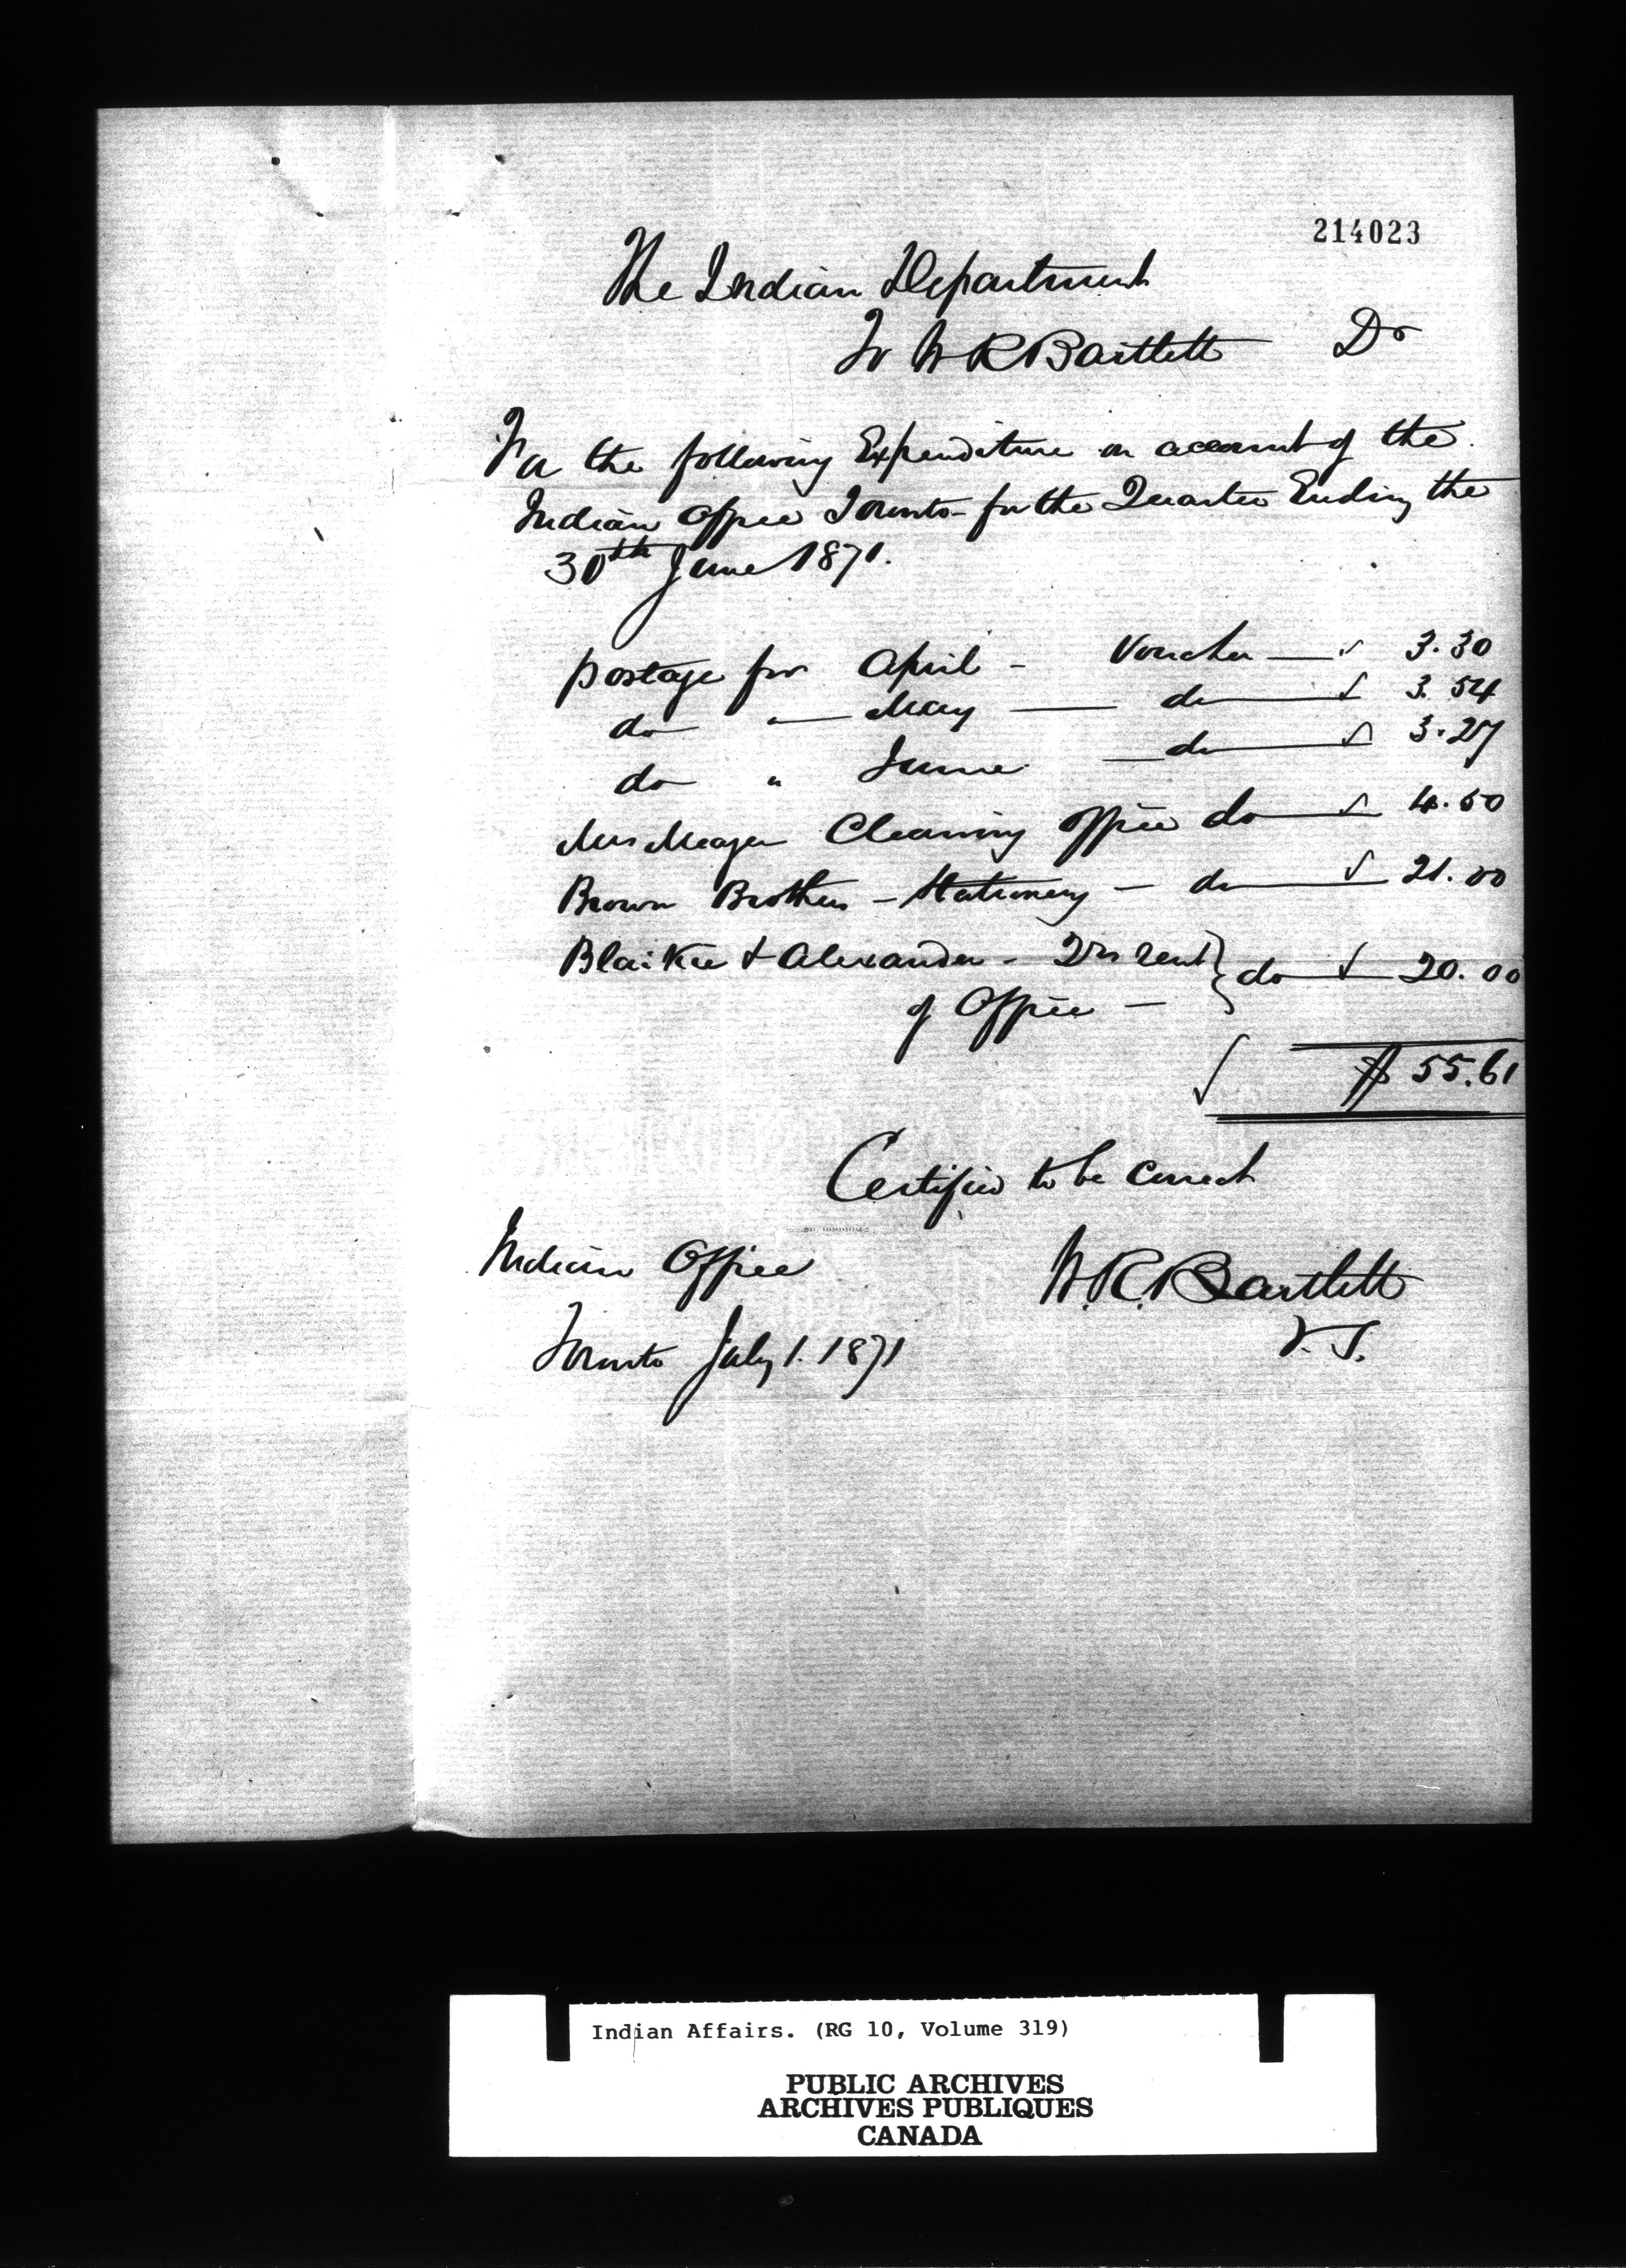 214023
The Indian Department
To W R Bartlett Dr
For the following Expenditure on account of the
Indian Office Toronto - for the Quarter Ending the
30th June 1871.
postage for April - Voucher — √ 3.30
do " — May — do — √ 3.54
do " June — do — √ 3.27
Mrs Meager Cleaning Office do — √ 4.50
Brown Brothers - Stationery - do — √ 21.00
Blaikie & Alexander - Qrs rent } do — √ — 20.00
of Office —
√ $ 55.61
Certified to be correct
Indian Office
W.R. Bartlett
V.S.
Toronto July 1. 1871
Indian Affairs. (RG 10, Volume 319)
PUBLIC ARCHIVES
ARCHIVES PUBLIQUES
CANADA